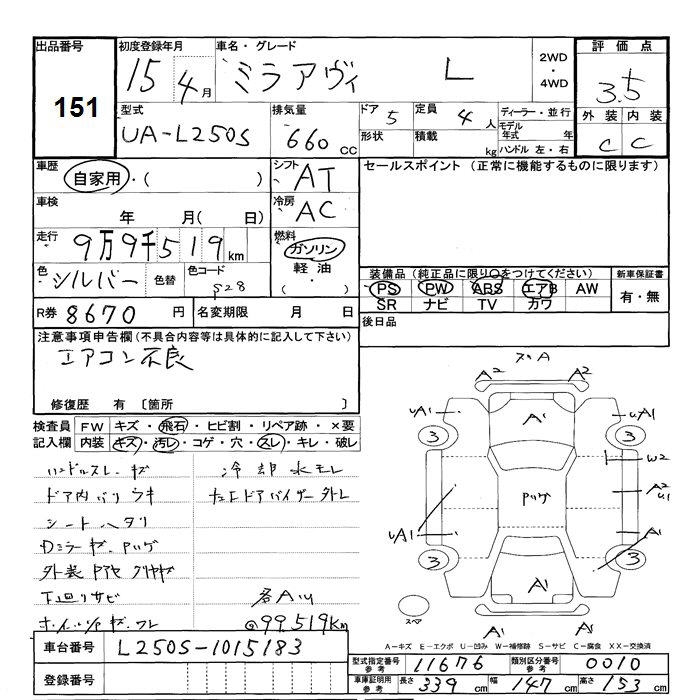 出品番号 初度登録年月 車名・グレード 評価点
151 15 4月 ミラアヴィ L 2WD・4WD 3.5
型式 排気量 ドア 5 定員 4人 ディーラー・並行 外装 内装
UA-L250S 660cc 形状 積載 kg モデル年式 年 ハンドル 左・右 C C
車歴 自家用・( ) シフト AT セールスポイント(正常に機能するものに限ります)
車検 年 月( 日) 冷房 AC
走行 9万9千519km 燃料 ガソリン
色 シルバー 色替 色コード S28 軽油・( ) 装備品(純正品に限り○をつけてください) 新車保証書
PS PW ABS エアB AW 有・無
R券 8670円 名変期限 月 日 SR ナビ TV カワ
注意事項申告欄(不具合内容等は具体的に記入して下さい) 後日品
エアコン不良
修復歴 有〔箇所 〕
検査員 FW キズ・飛石・ヒビ割・リペア跡・×要
記入欄 内装 キズ・汚レ・コゲ・穴・スレ・キレ・破レ
ハンドルスレ・キズ 冷却水モレ
ドア内バリウキ
シートヘタリ
下廻りサビ 各A・U
@99,519km
A2 A2
uA1 A1 uA1
3 3
W2
A2 u1
uA1 A1
3 3
A1
A1 A1
スペア
A-キズ E-エクボ U-凹み W-補修跡 S-サビ C-腐食 XX-交換済
車台番号 L250S-1015183 型式指定番号 参考 11676 類別区分番号 参考 0010
登録番号 車庫証明用 参考 長さ 339cm 幅 147cm 高さ 153cm